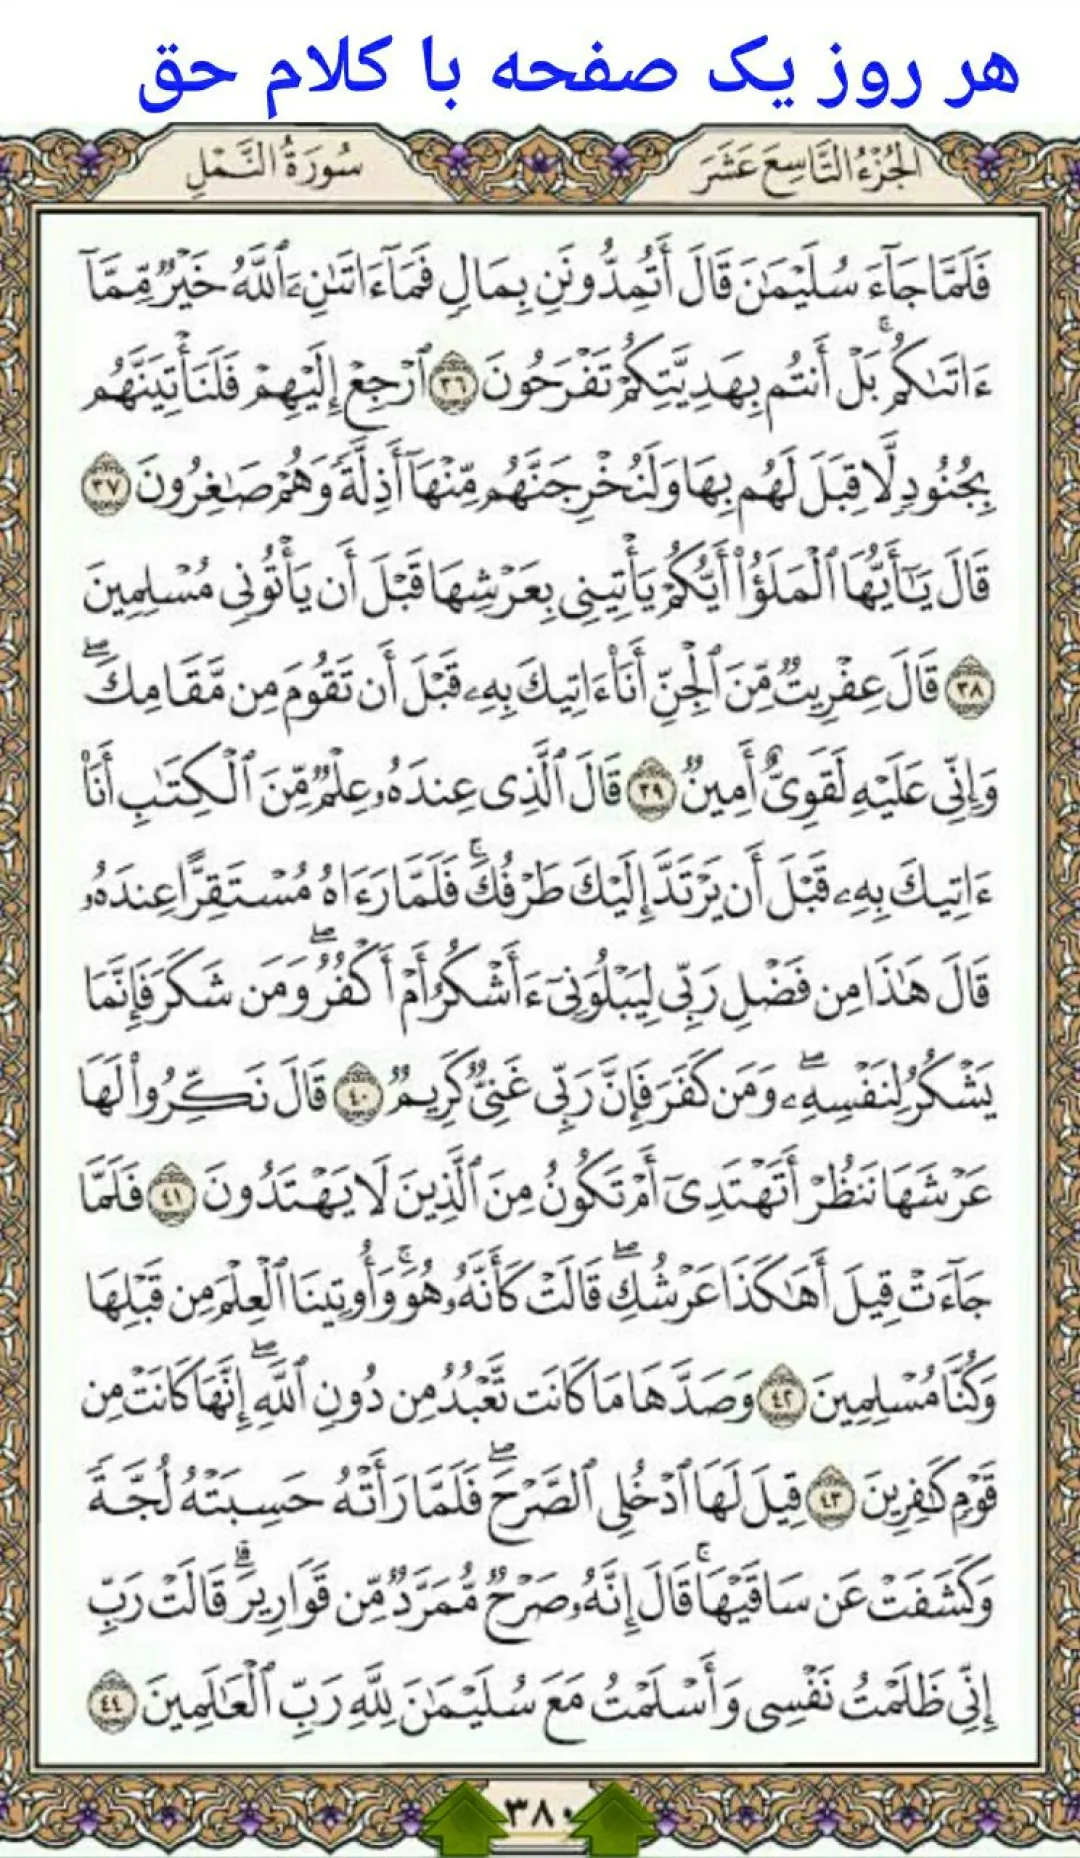 هر روز یک صفحه با کلام حق
الجُزْءُ التَّاسِعَ عَشَرَ
سُورَةُ النَّمْلِ
فَلَمَّا جَآءَ سُلَيْمَٰنَ قَالَ أَتُمِدُّونَنِ بِمَالٍ فَمَآ ءَاتَىٰنِۦَ ٱللَّهُ خَيْرٌ مِّمَّآ
ءَاتَىٰكُمۚ بَلْ أَنتُم بِهَدِيَّتِكُمْ تَفْرَحُونَ ٣٦ ٱرْجِعْ إِلَيْهِمْ فَلَنَأْتِيَنَّهُم
بِجُنُودٍ لَّا قِبَلَ لَهُم بِهَا وَلَنُخْرِجَنَّهُم مِّنْهَآ أَذِلَّةً وَهُمْ صَٰغِرُونَ ٣٧
قَالَ يَٰٓأَيُّهَا ٱلْمَلَؤُا۟ أَيُّكُمْ يَأْتِينِى بِعَرْشِهَا قَبْلَ أَن يَأْتُونِى مُسْلِمِينَ
٣٨ قَالَ عِفْرِيتٌ مِّنَ ٱلْجِنِّ أَنَا۠ ءَاتِيكَ بِهِۦ قَبْلَ أَن تَقُومَ مِن مَّقَامِكَۖ
وَإِنِّى عَلَيْهِ لَقَوِىٌّ أَمِينٌ ٣٩ قَالَ ٱلَّذِى عِندَهُۥ عِلْمٌ مِّنَ ٱلْكِتَٰبِ أَنَا۠
ءَاتِيكَ بِهِۦ قَبْلَ أَن يَرْتَدَّ إِلَيْكَ طَرْفُكَۚ فَلَمَّا رَءَاهُ مُسْتَقِرًّا عِندَهُۥ
قَالَ هَٰذَا مِن فَضْلِ رَبِّى لِيَبْلُوَنِىٓ ءَأَشْكُرُ أَمْ أَكْفُرُۖ وَمَن شَكَرَ فَإِنَّمَا
يَشْكُرُ لِنَفْسِهِۦۖ وَمَن كَفَرَ فَإِنَّ رَبِّى غَنِىٌّ كَرِيمٌ ٤٠ قَالَ نَكِّرُوا۟ لَهَا
عَرْشَهَا نَنظُرْ أَتَهْتَدِىٓ أَمْ تَكُونُ مِنَ ٱلَّذِينَ لَا يَهْتَدُونَ ٤١ فَلَمَّا
جَآءَتْ قِيلَ أَهَٰكَذَا عَرْشُكِۖ قَالَتْ كَأَنَّهُۥ هُوَۚ وَأُوتِينَا ٱلْعِلْمَ مِن قَبْلِهَا
وَكُنَّا مُسْلِمِينَ ٤٢ وَصَدَّهَا مَا كَانَت تَّعْبُدُ مِن دُونِ ٱللَّهِۖ إِنَّهَا كَانَتْ مِن
قَوْمٍ كَٰفِرِينَ ٤٣ قِيلَ لَهَا ٱدْخُلِى ٱلصَّرْحَۖ فَلَمَّا رَأَتْهُ حَسِبَتْهُ لُجَّةً
وَكَشَفَتْ عَن سَاقَيْهَاۚ قَالَ إِنَّهُۥ صَرْحٌ مُّمَرَّدٌ مِّن قَوَارِيرَۗ قَالَتْ رَبِّ
إِنِّى ظَلَمْتُ نَفْسِى وَأَسْلَمْتُ مَعَ سُلَيْمَٰنَ لِلَّهِ رَبِّ ٱلْعَٰلَمِينَ ٤٤
٣٨٠